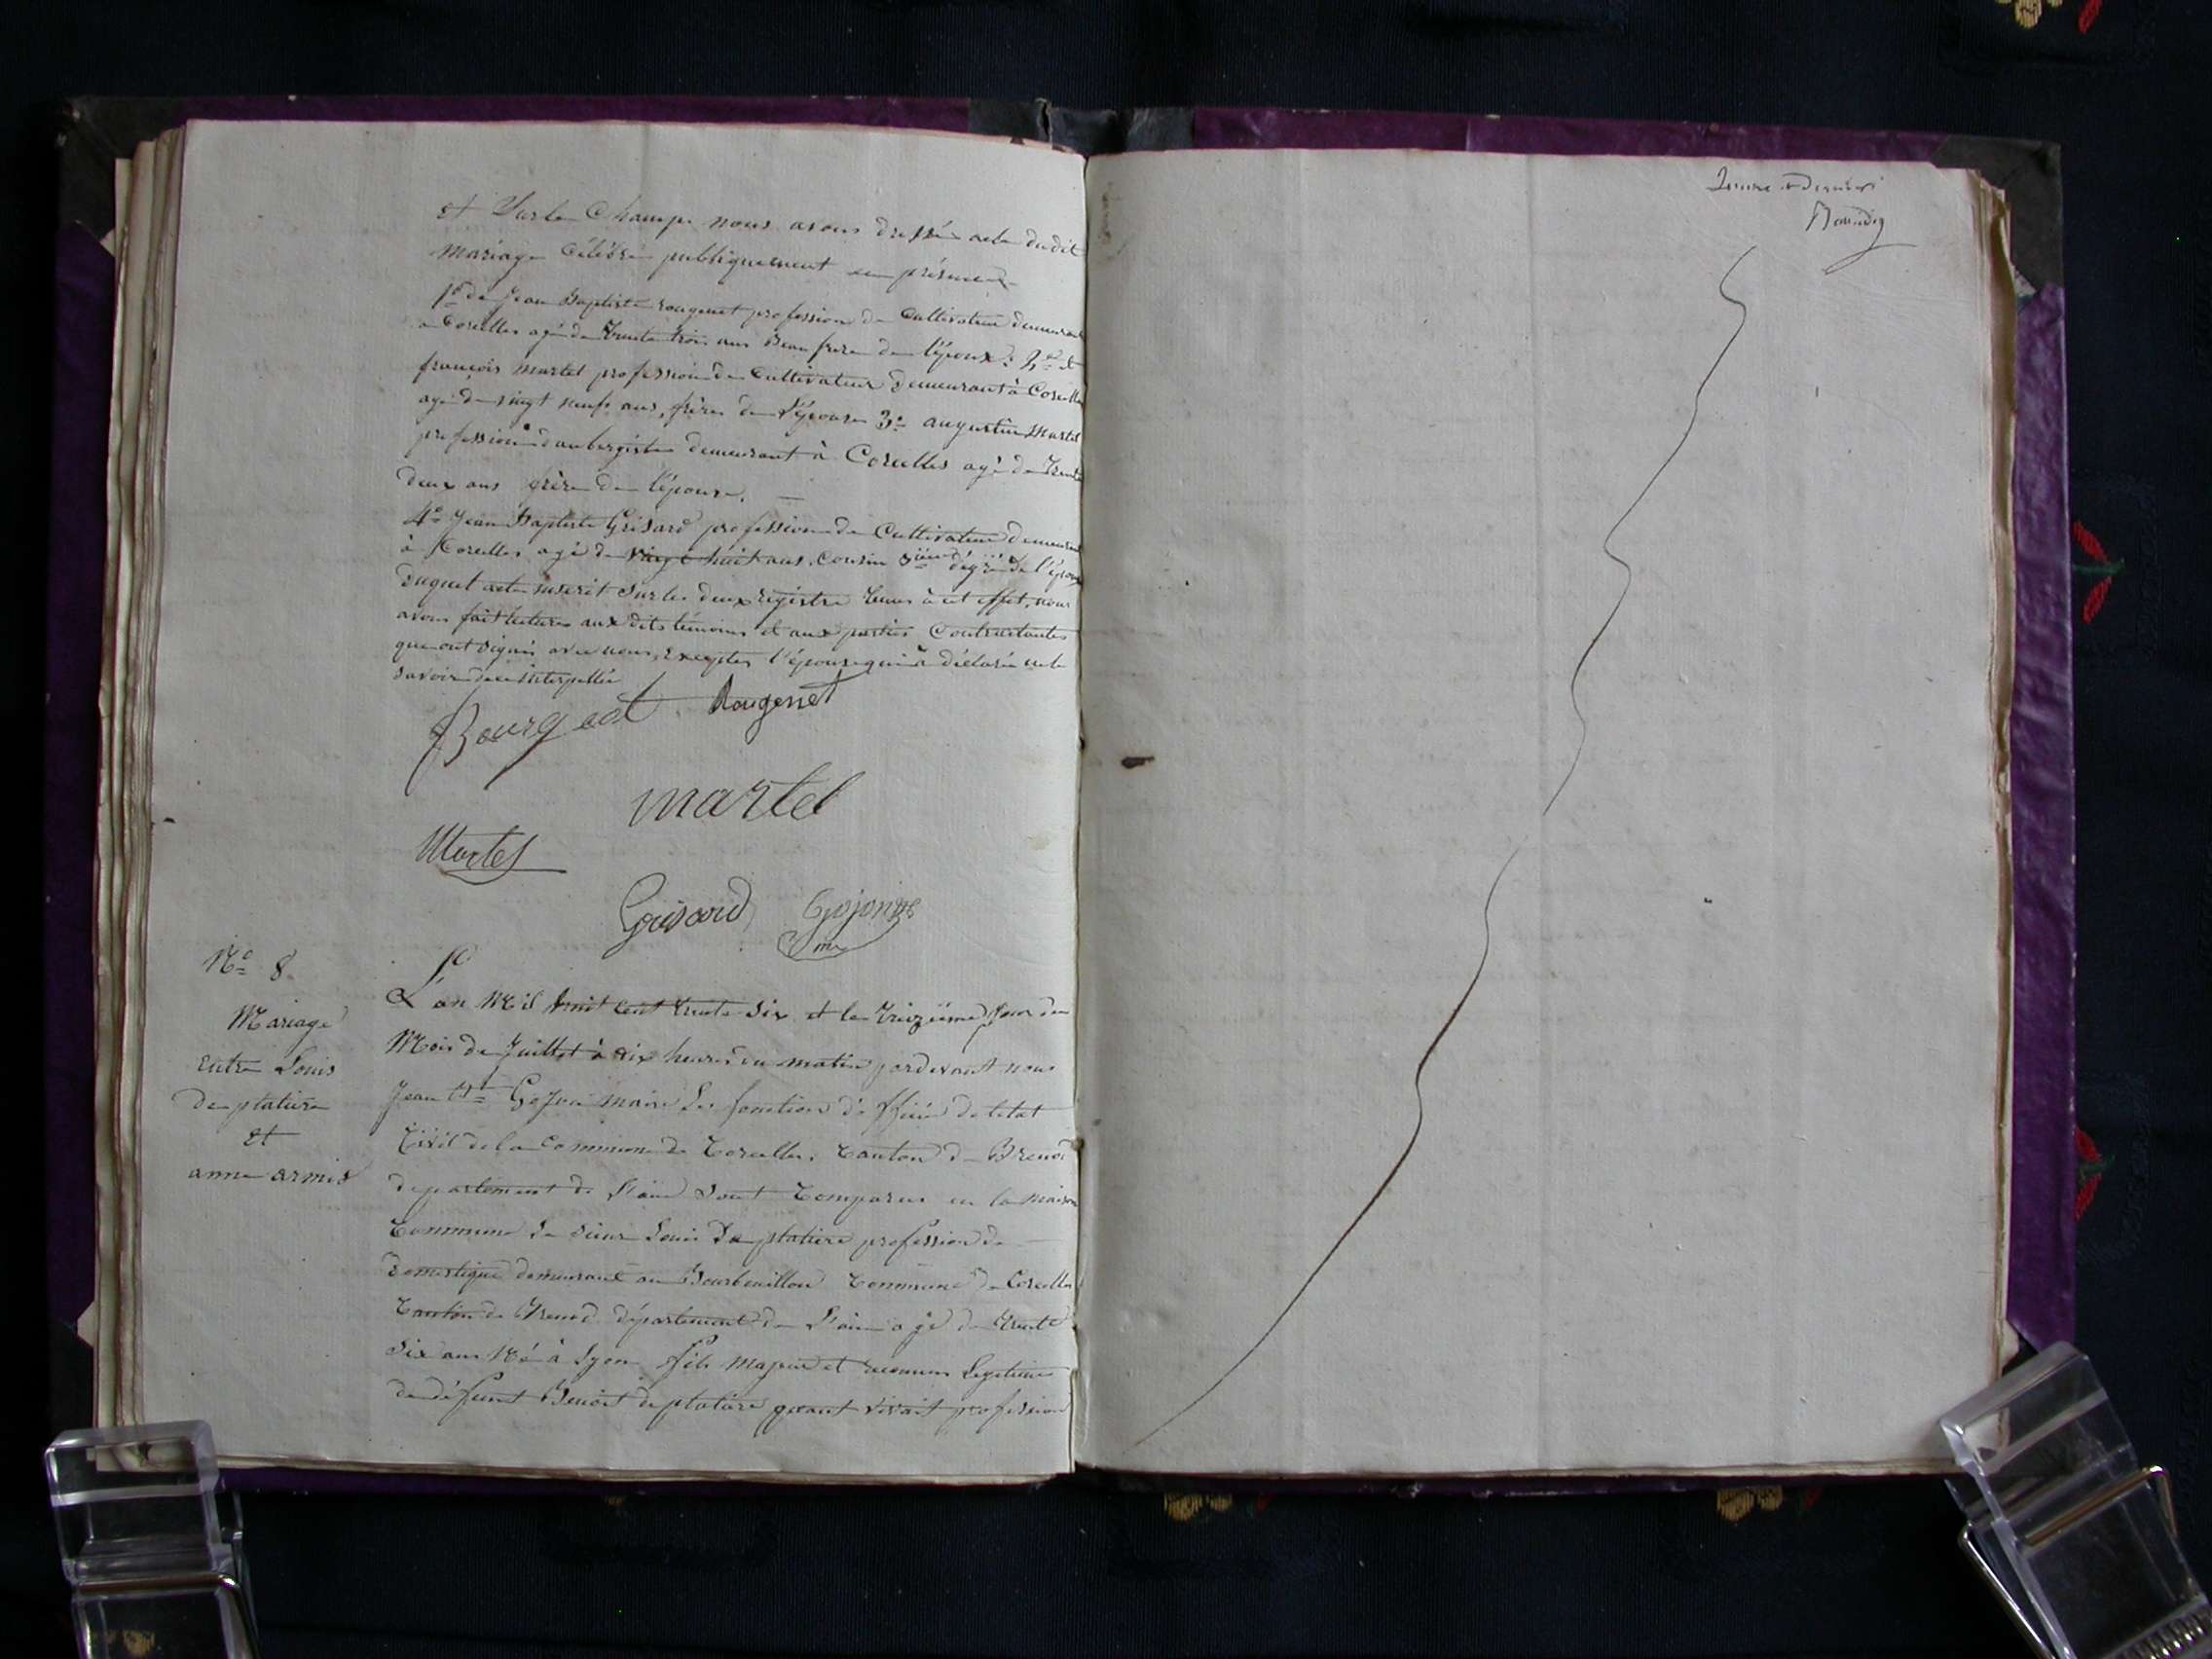 et Sur le Champ nous avons dressé acte dudit
mariage Célébré publiquement en présence
1o de Jean Baptiste rougemet profession de Cultivateur demeurant
a Corcelles agé de Trente trois ans Beau frere de l'époux: 2o de
françois martel profession de Cultivateur demeurant à Corcelles
agé de vingt neuf ans, frère de l'épouse 3o augustin Martel
profession d'aubergiste demeurant à Corcelles agé de Trente
deux ans frère de l'épouse.
4o Jean Baptiste Grisard profession de Cultivateur demeurant
à Corcelles agé de vingt huit ans, cousin 3ième dégré de l'épouse
duquel acte inscrit sur les deux régistre tenus à cet effet, nous
avons fait lecture aux dits témoins et aux parties Contractantes
que ont signés avec nous, excepter l'épouse qui à déclaré ne le
savoir de ce interpellée
Bourgeat Rougemet
martel
Martel
Grisard Gojon
me
No 8
Mariage
entre Louis
de platière
et
anne armis
L'an Mil huit cent trente six et le treizième jour du
Mois de Juillet à dix heures du matin pardevant nous
Jean Gojon maire les fonction d'officié de letat
Civil de la Commune de Corcelles, Canton de Brenod
département de l'ain sont Comparus en la maison
Commune le sieur Louis De platière profession de
domestique demeurant au Bourbouillon Commune de Corcelles
Canton de Brenod département de l'ain agé de trente
six ans Né à Lyon fils majeur et reconnu legitime
de défunt Benoit de platière quant vivait profession